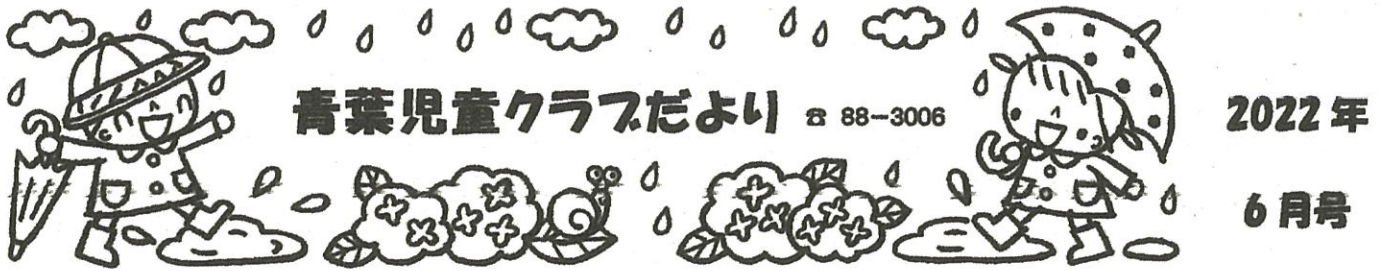 青葉児童クラブだより ☎ 88-3006
2022年
6月号